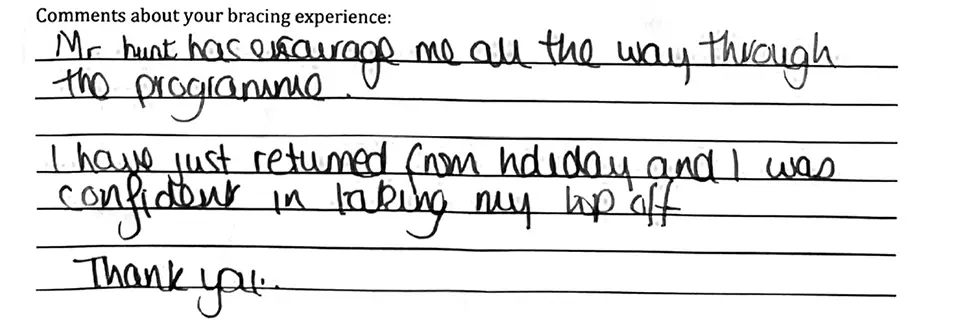 Comments about your bracing experience:
Mr hunt has encourage me all the way through
the programme.
I have just returned from holiday and I was
confident in taking my top off
Thank you.